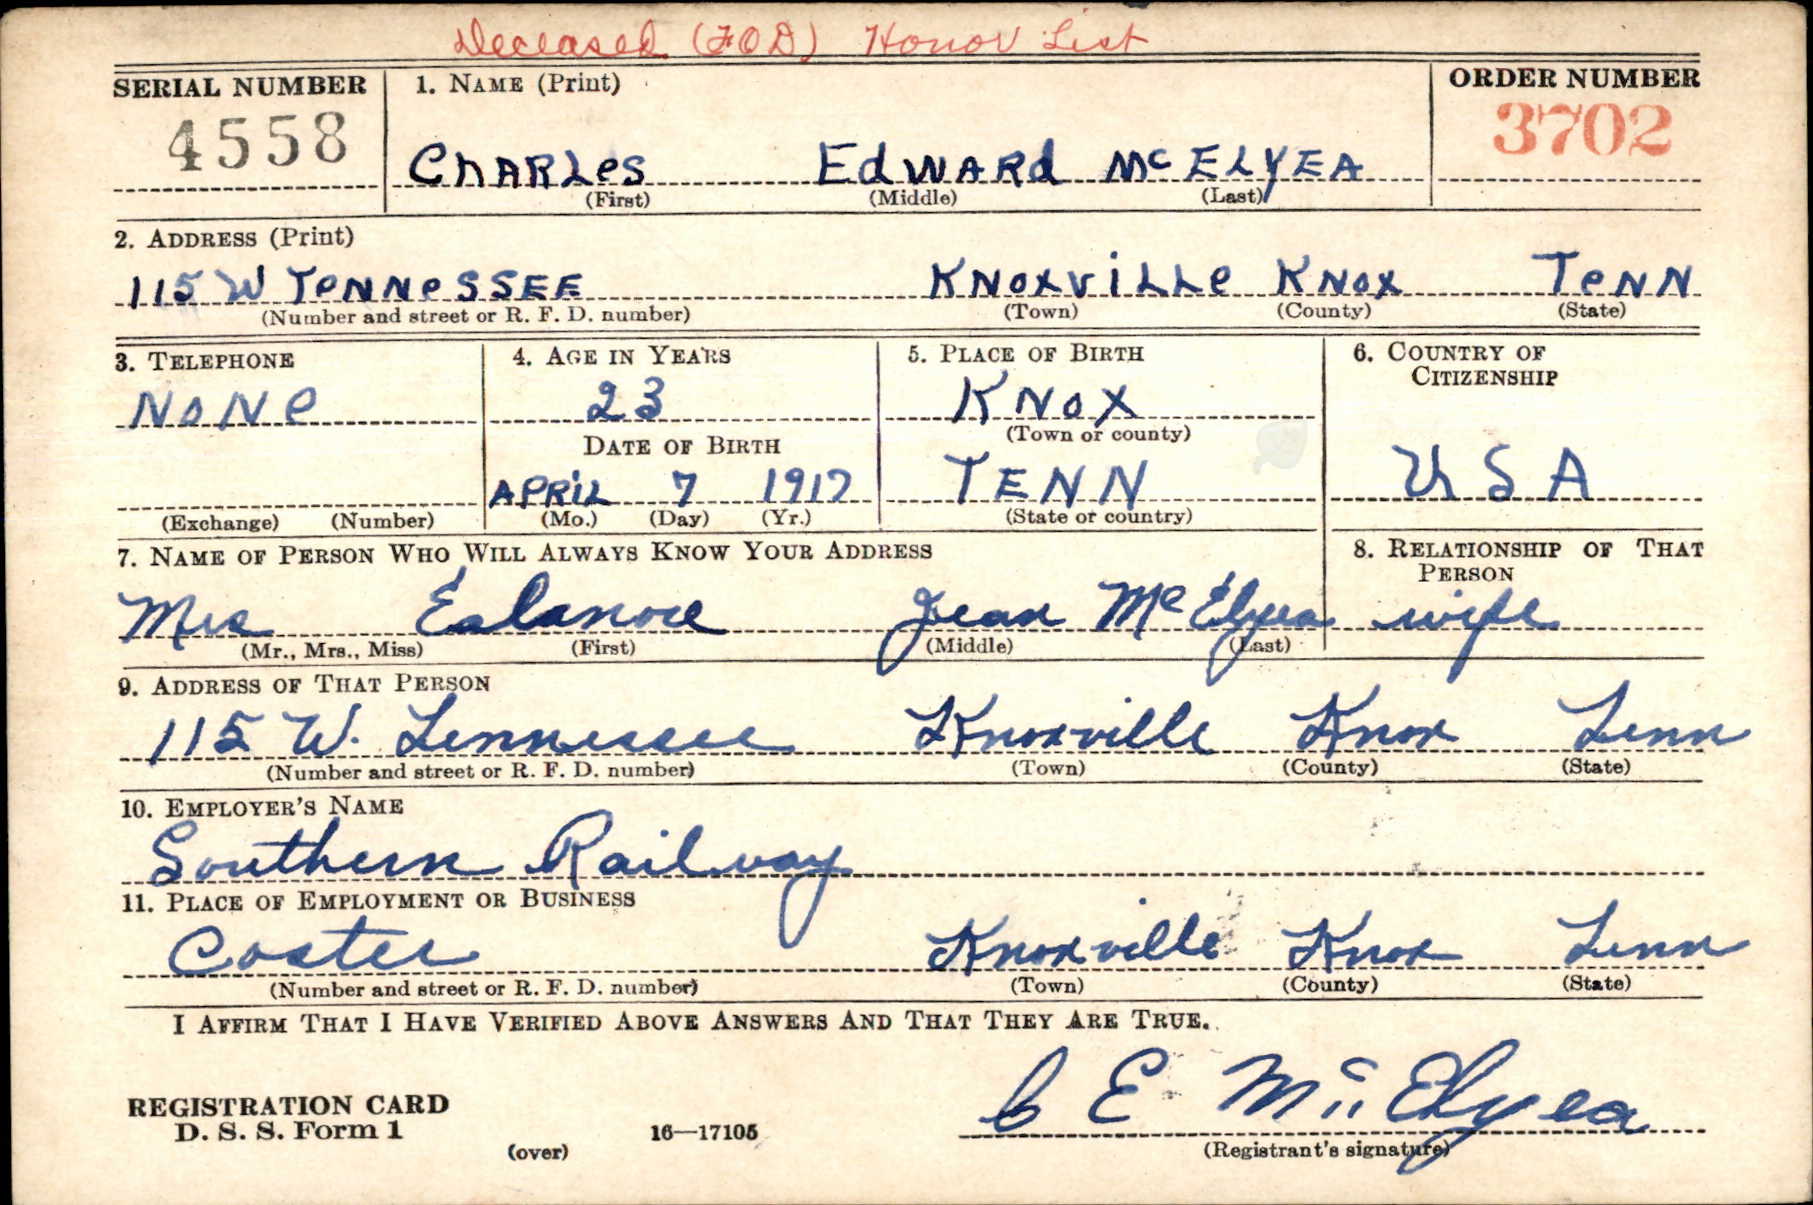 Deceased (FOD) Honor List
SERIAL NUMBER 1. NAME (Print) ORDER NUMBER
4558 3702
CHARLES EdWARd McELYEA
(First) (Middle) (Last)
2. ADDRESS (Print)
115 W TeNNeSSEE KNOXViLLe KNOX TeNN
(Number and street or R. F. D. number) (Town) (County) (State)
3. TELEPHONE 4. AGE IN YEARS 5. PLACE OF BIRTH 6. COUNTRY OF CITIZENSHIP
NoNe 23 KNOX
DATE OF BIRTH (Town or county)
APRiL 7 1917 TENN USA
(Exchange) (Number) (Mo.) (Day) (Yr.) (State or country)
7. NAME OF PERSON WHO WILL ALWAYS KNOW YOUR ADDRESS 8. RELATIONSHIP OF THAT PERSON
Mrs Ealanore Jean McElyea wife
(Mr., Mrs., Miss) (First) (Middle) (Last)
9. ADDRESS OF THAT PERSON
115 W. Tennessee Knoxville Knox Tenn
(Number and street or R. F. D. number) (Town) (County) (State)
10. EMPLOYER'S NAME
Southern Railway
11. PLACE OF EMPLOYMENT OR BUSINESS
Coster Knoxville Knox Tenn
(Number and street or R. F. D. number) (Town) (County) (State)
I AFFIRM THAT I HAVE VERIFIED ABOVE ANSWERS AND THAT THEY ARE TRUE.
C E McElyea
REGISTRATION CARD
D. S. S. Form 1 (over) 16—17105 (Registrant's signature)